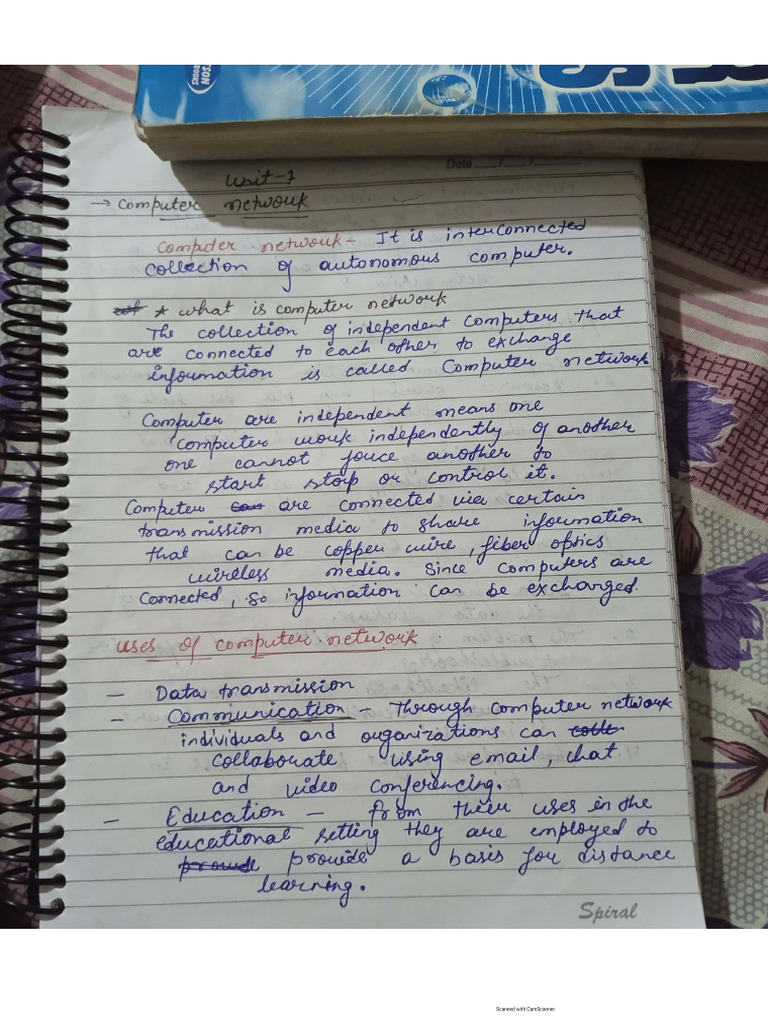 SON
BOOKS
Date ___/___/___
Unit-1
→ Computer network
Computer network - It is interconnected
collection of autonomous computer.
* what is computer network
The collection of independent Computers that
are connected to each other to exchange
information is called Computer network.
Computer are independent means one
computer work independently of another
one cannot force another to
start stop or control it.
Computer are connected via certain
transmission media to share information
that can be copper wire, fiber optics
wireless media. Since computers are
connected, so information can be exchanged.
uses of computer network
- Data transmission
- Communication - Through computer network
individuals and organizations can
collaborate using email, chat
and video conferencing.
- Education - from their uses in the
educational setting they are employed to
provide a basis for distance
learning.
Spiral
Scanned with CamScanner